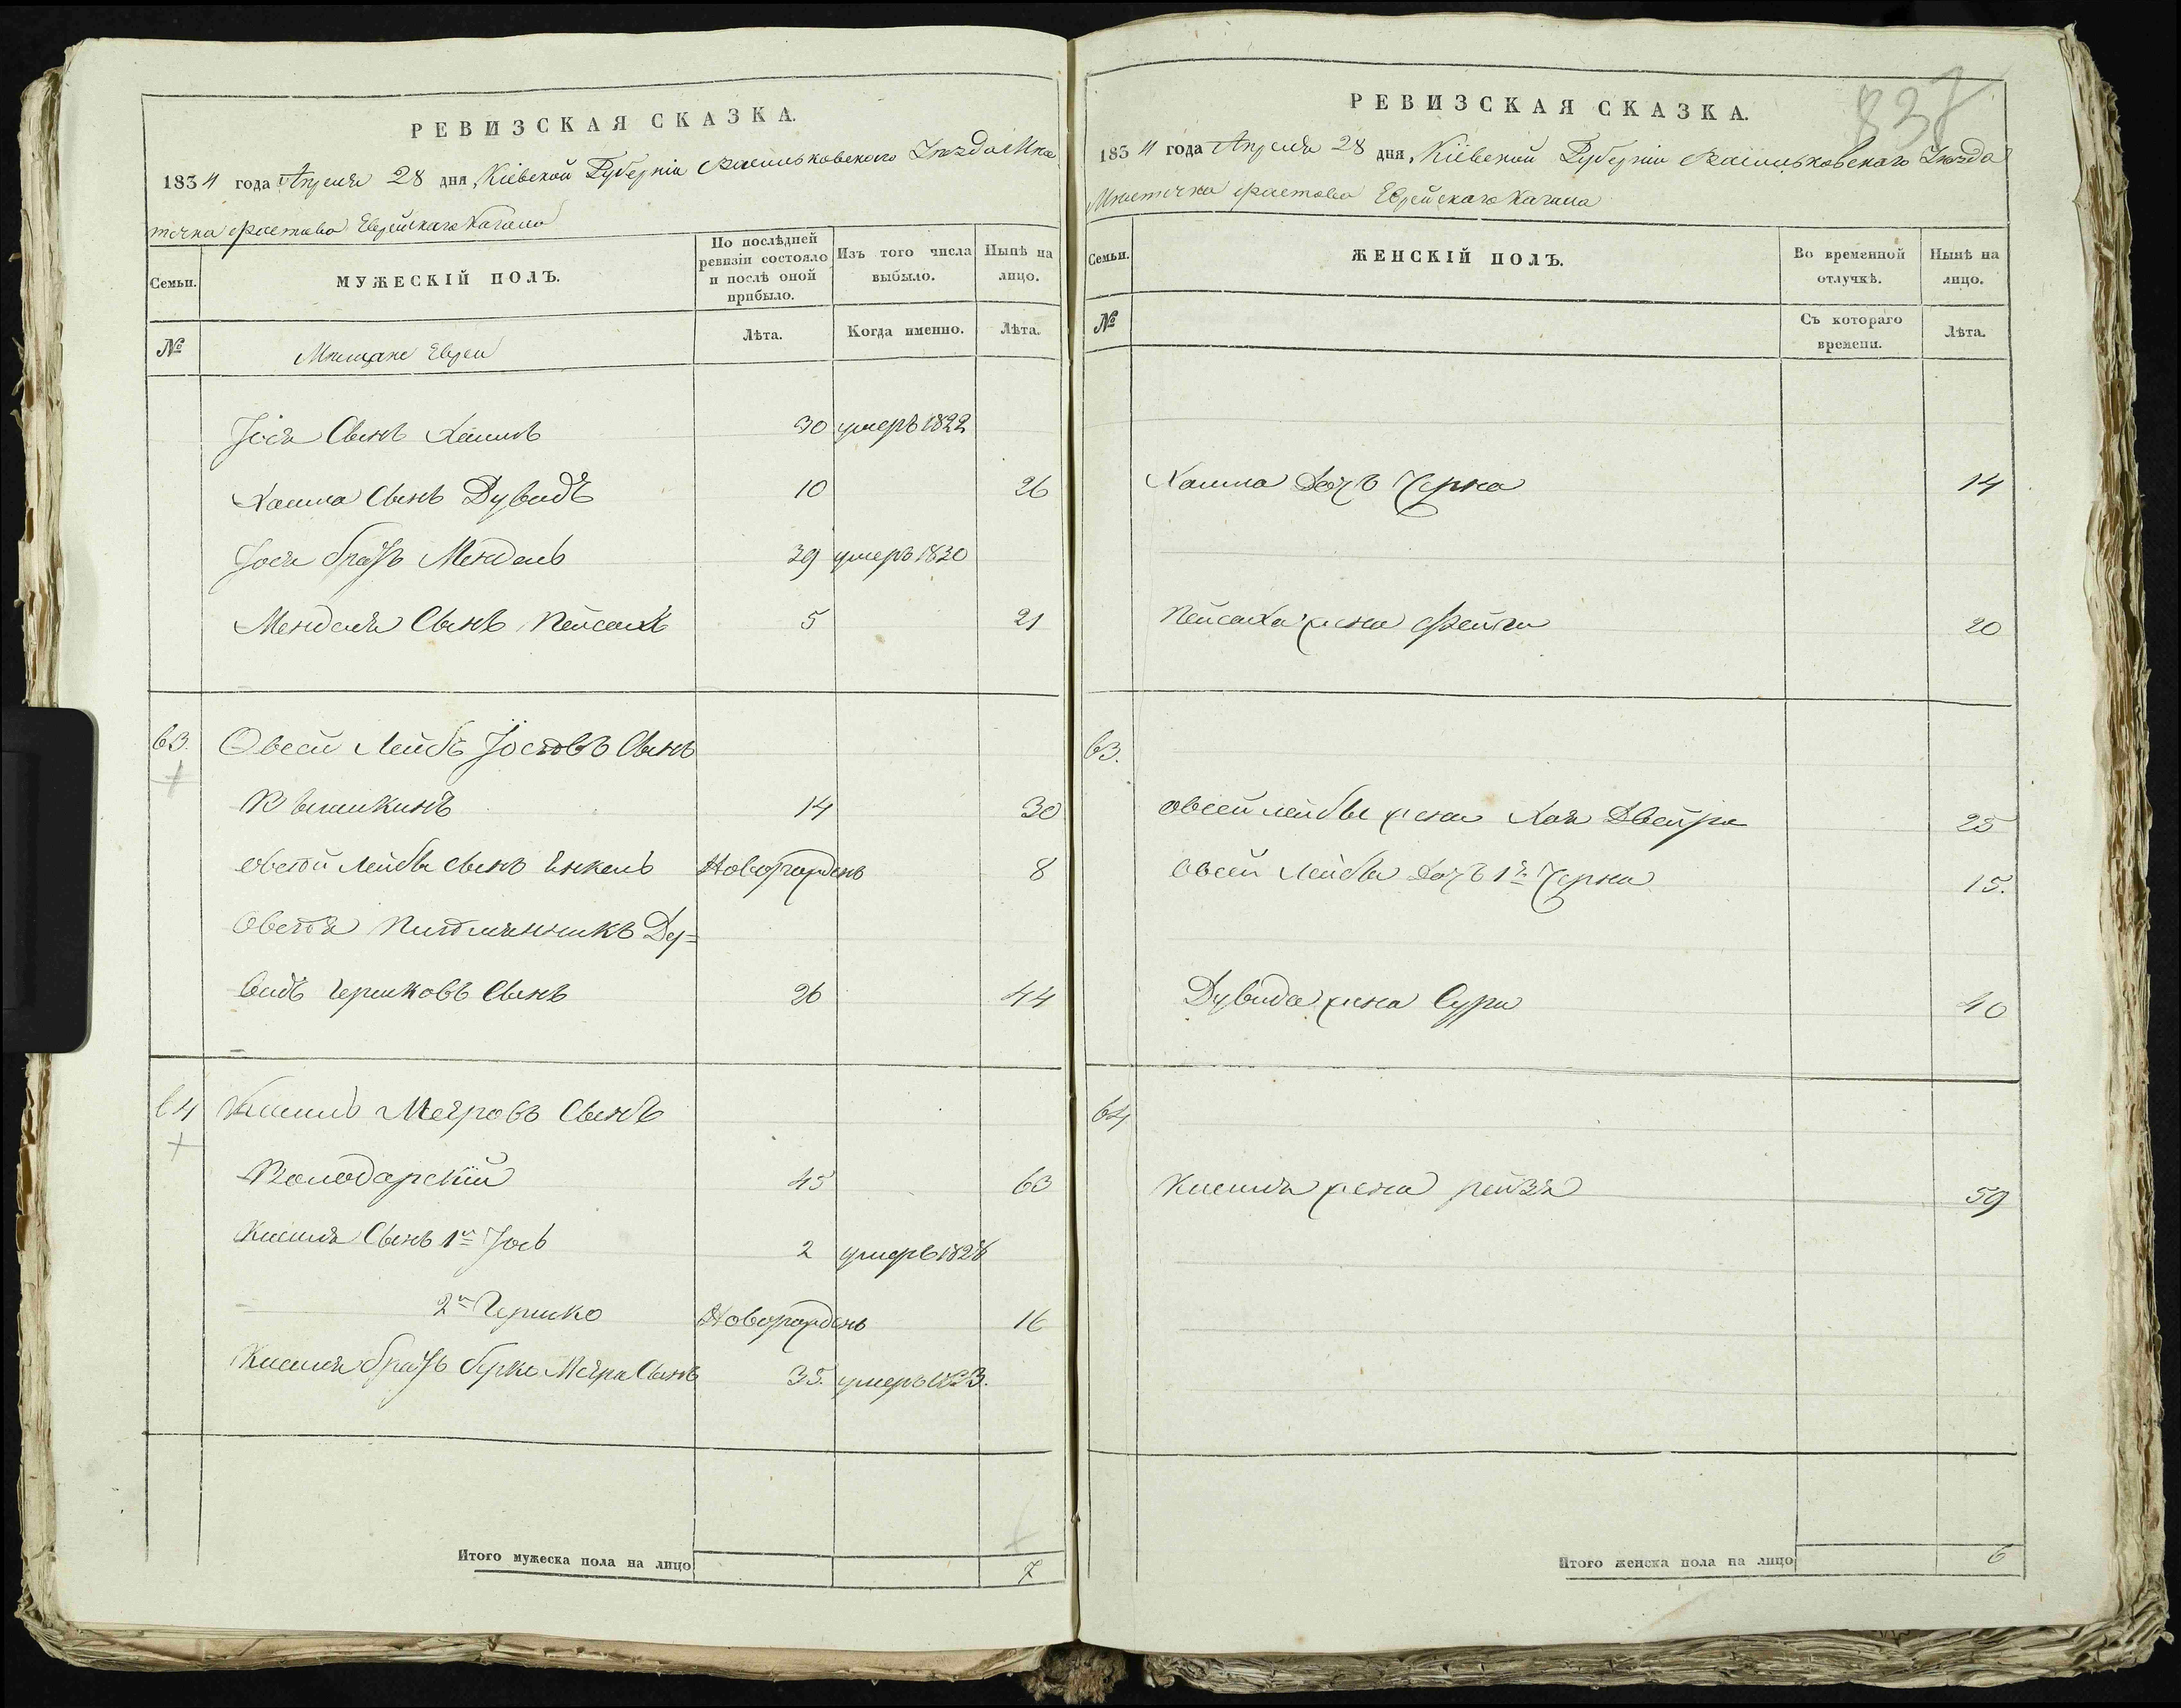 РЕВИЗСКАЯ СКАЗКА.
1834 года Апреля 28 дня, Кіевской Губерніи Васильковскаго Уѣзда Мѣс
течка Фастова Еврейскаго Кагала
Семьи.
МУЖЕСКІЙ ПОЛЪ.
По послѣдней ревизіи состояло и послѣ оной прибыло.
Изъ того числа выбыло.
Нынѣ на лицо.
№
Мѣщане Евреи
Лѣта.
Когда именно.
Лѣта.
Іося Сынъ Хаимъ 30 умеръ 1822
Хаима Сынъ Дувидъ 10 26
Іося братъ Мендель 39 умеръ 1830
Менделя Сынъ Пейсахъ 5 21
63. Овсей Лейбъ Іосіовъ Сынъ
14 30
Овсѣй Лейбы сынъ Енкель Новорожденъ 8
Овсѣя Племянникъ Ду=
видъ Гершковъ Сынъ 26 44
64 Кисиль Меяровъ Сынъ
Володарскій 45 63
Кисиля Сынъ 1й Іось 2 умеръ 1828
2й Гершко Новорожденъ 16
Кисиля братъ Берко Меяра Сынъ 35. умеръ 1823.
Итого мужеска пола на лицо 7
837
РЕВИЗСКАЯ СКАЗКА.
1834 года Апреля 28 дня, Кіевской Губерніи Васильковскаго Уѣзда
Мѣстечка Фастова Еврейскаго Кагала
Семьи.
ЖЕНСКІЙ ПОЛЪ.
Во временной отлучкѣ.
Нынѣ на лицо.
№
Съ котораго времени.
Лѣта.
Хаима Дочь Черна 14
Пейсаха жена Фейга 20
63.
Овсей Лейбы жена Хая Двейра 25
Овсей Лейбы Дочь 1я Черна 15.
Дувида жена Сура 40
64
Кисиля жена Рейзя 59
Итого женска пола на лицо 6